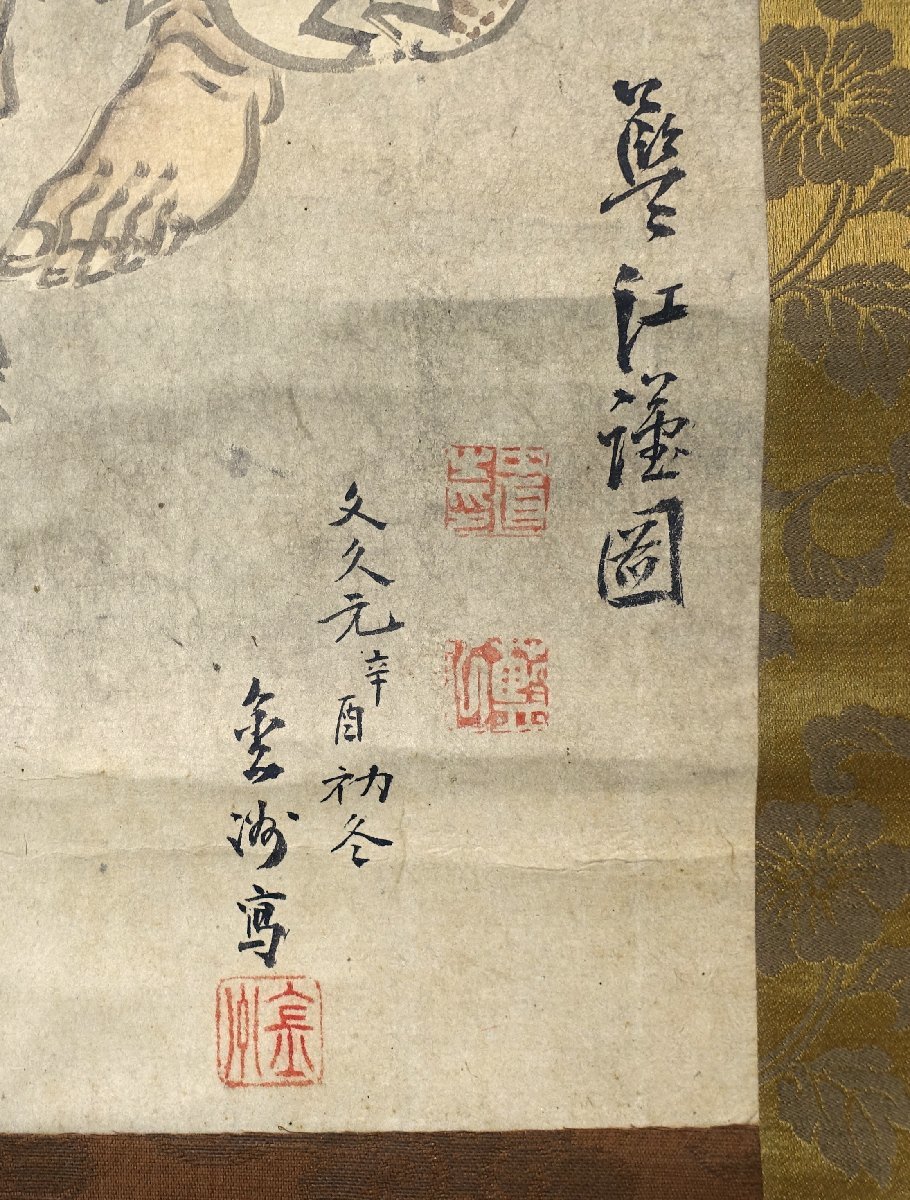 藍江謹圖
藍江
文久元辛酉初冬
金洲寫
金洲